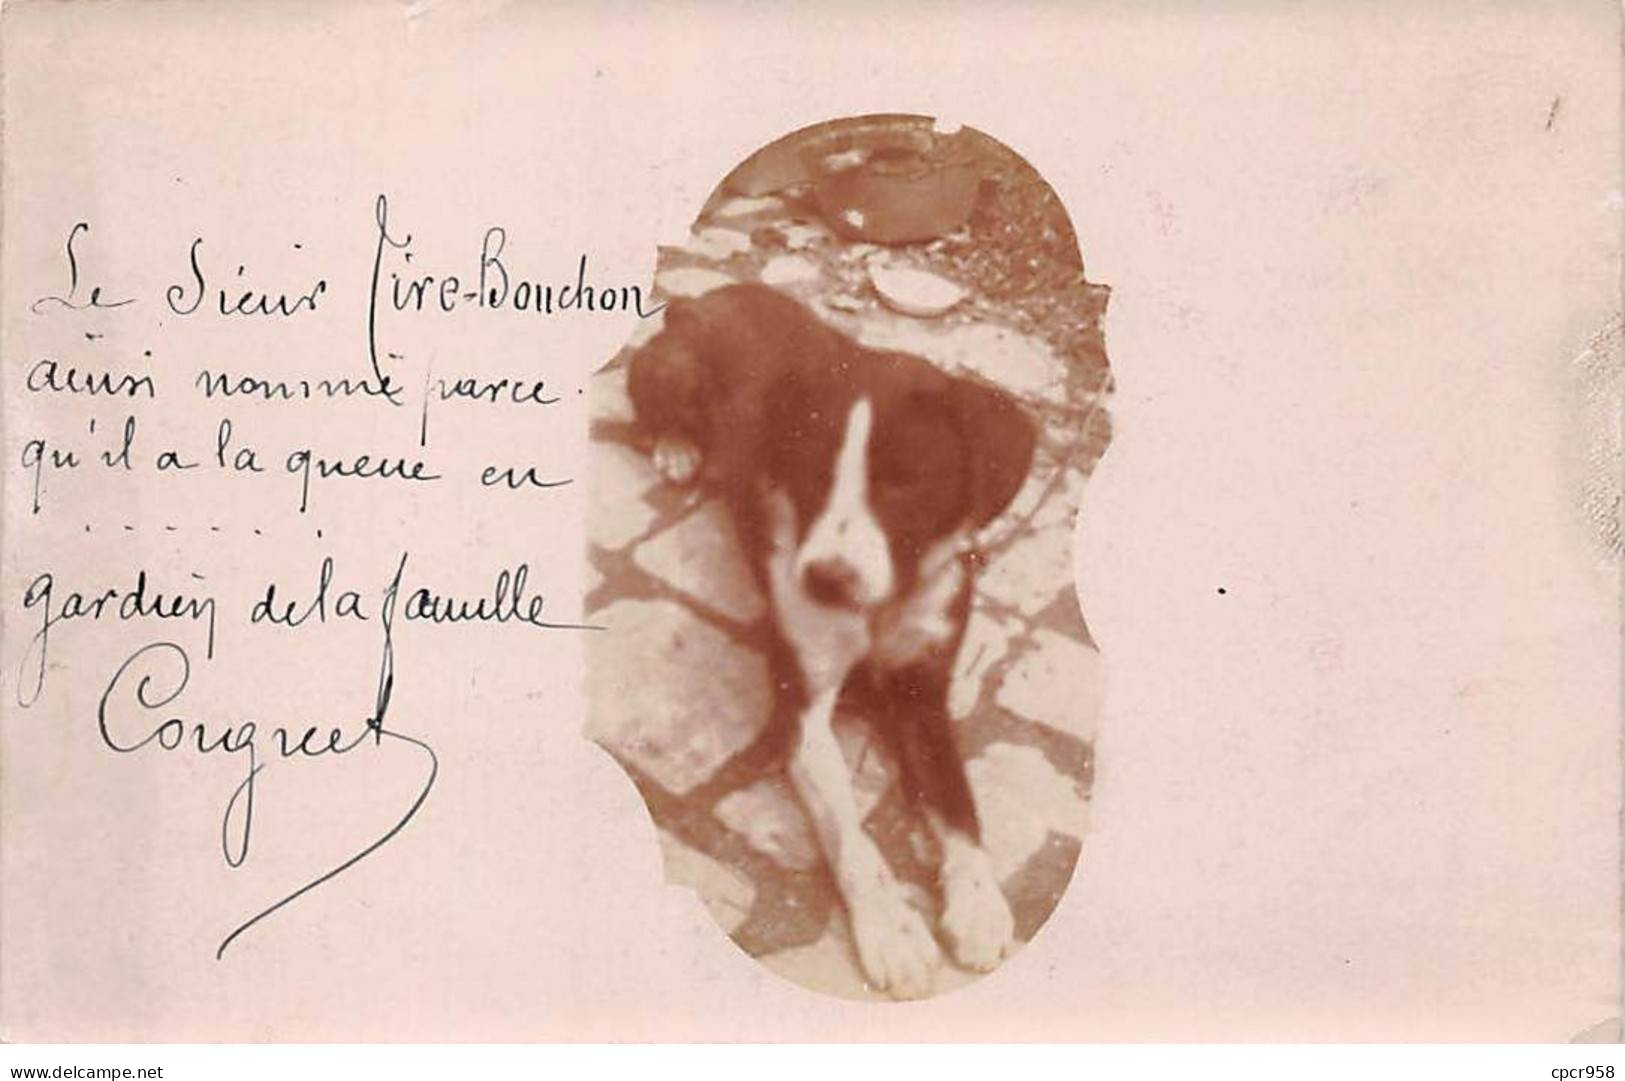 Le Sieur Tire-Bouchon
ainsi nommé parce
qu'il a la queue en
. . . . . . .
gardien de la famille
Congnet
www.delcampe.net
cpcr958